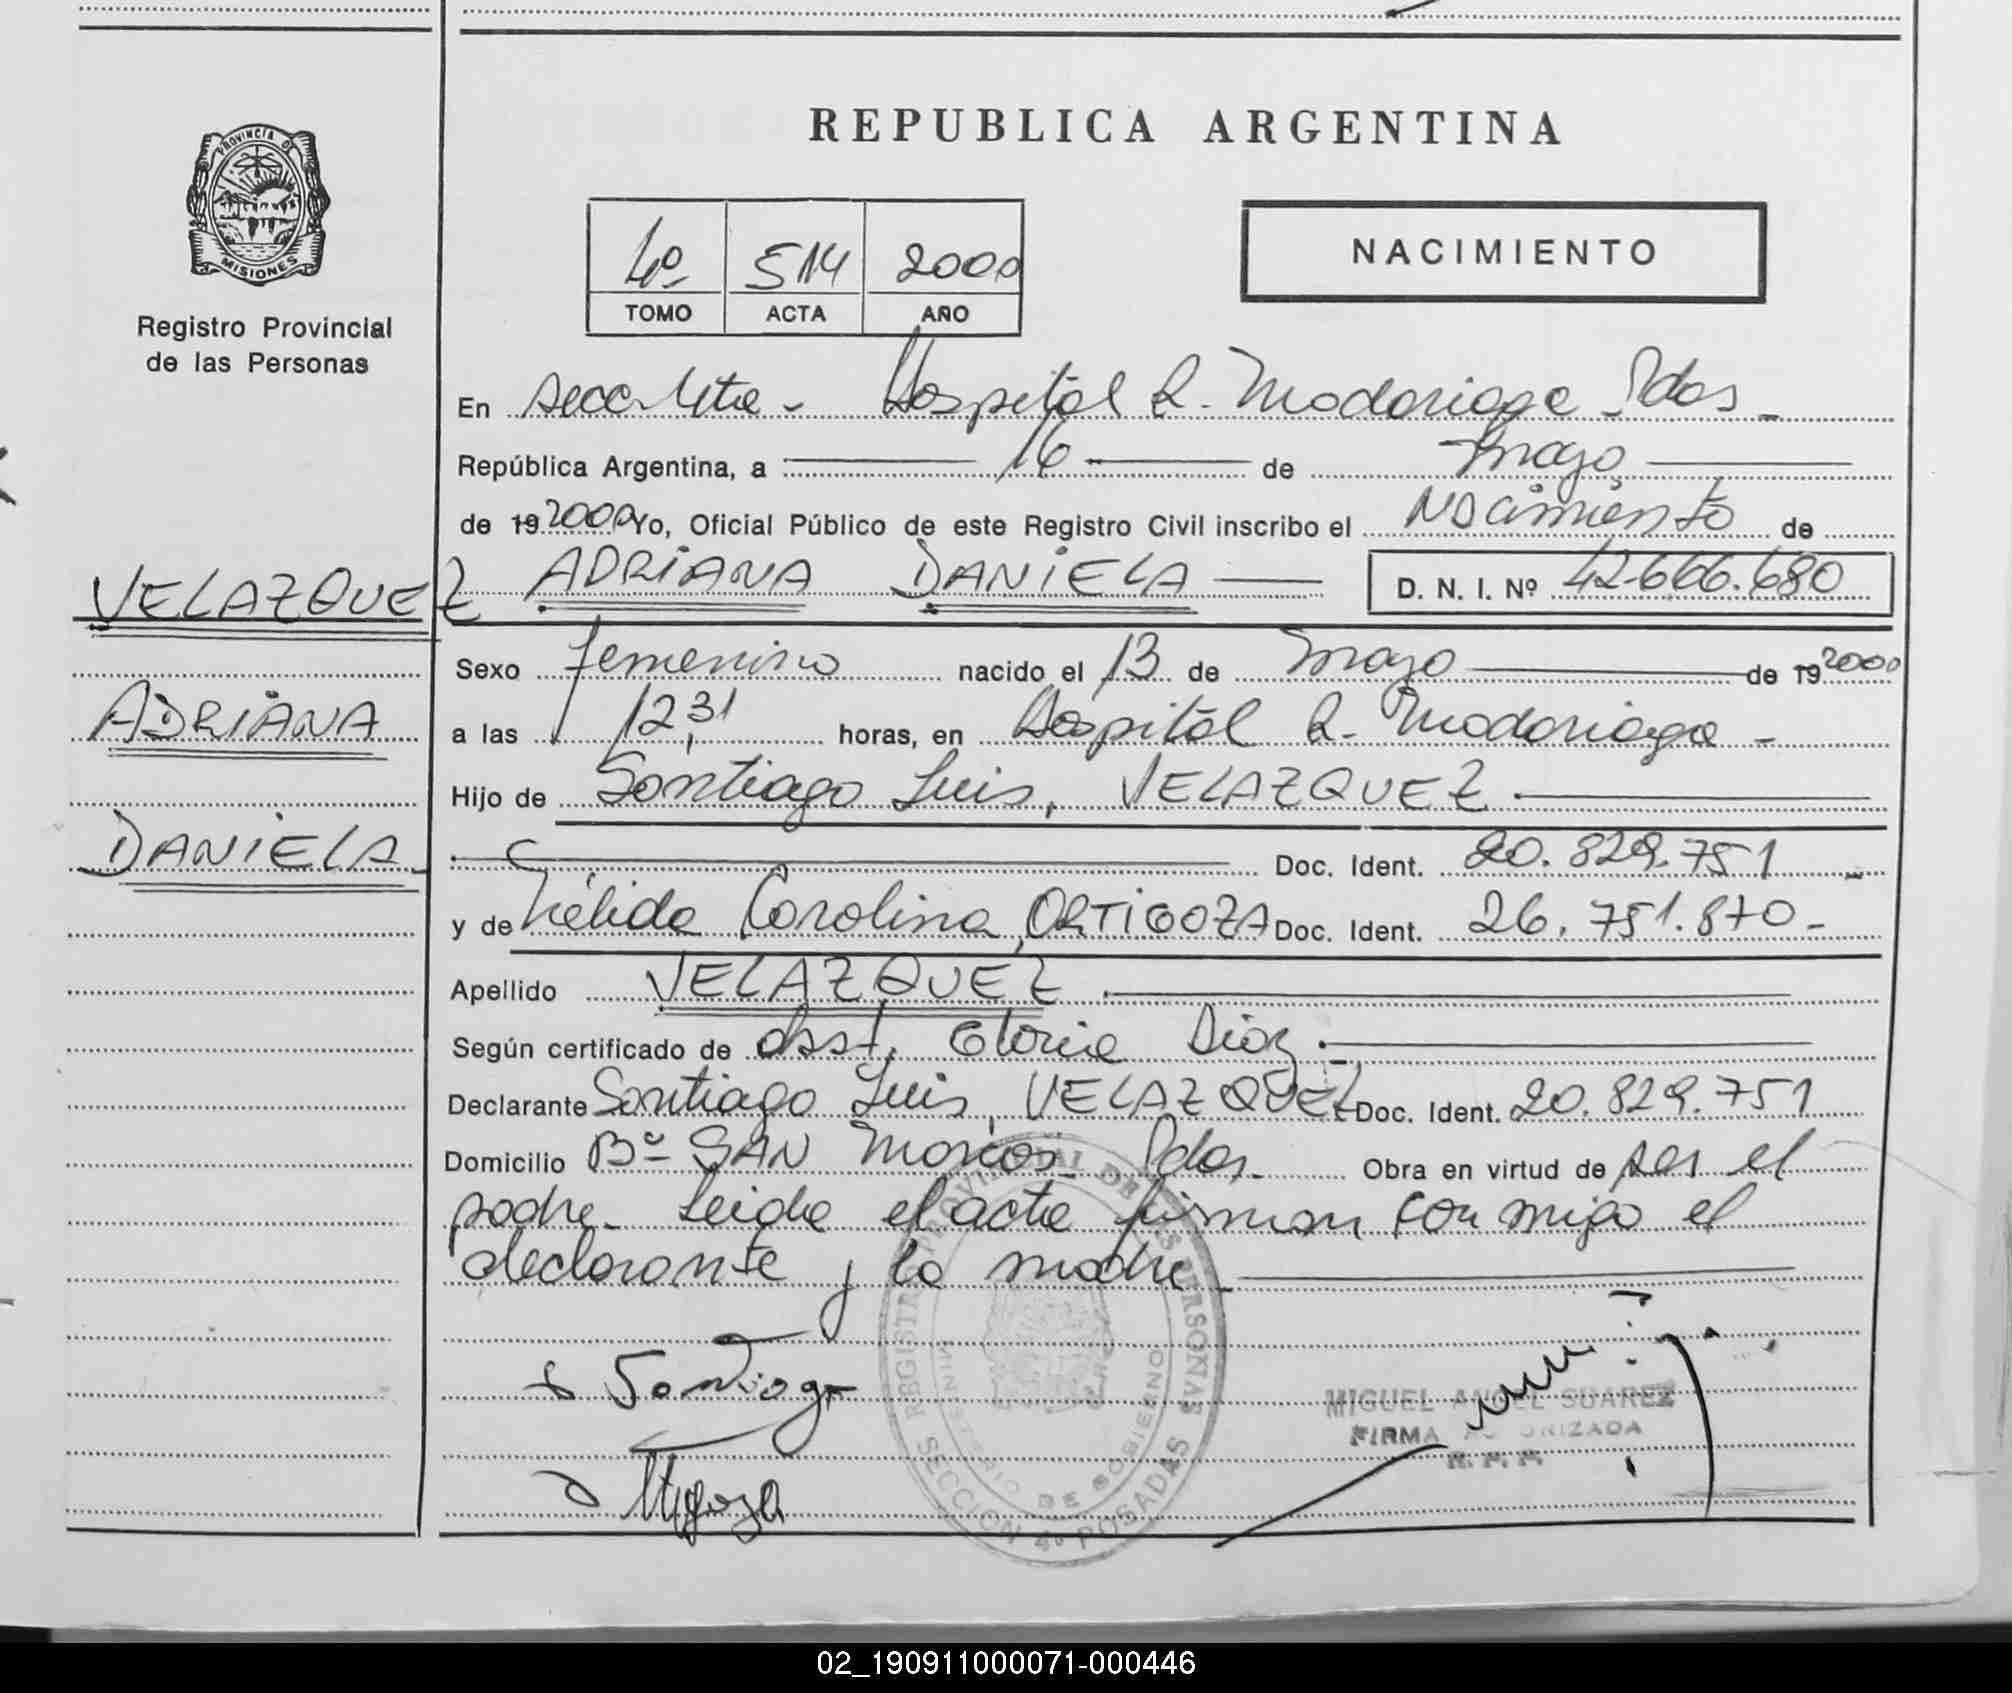 REPUBLICA ARGENTINA
PROVINCIA DE
MISIONES
Registro Provincial
de las Personas
4º 514 2000
TOMO ACTA AÑO
NACIMIENTO
En Secc. 4ta - Hospital R. Madariaga Pdas -
República Argentina, a 16 de mayo
de 19 2000 Yo, Oficial Público de este Registro Civil inscribo el Nacimiento de
ADRIANA DANIELA D. N. I. Nº 42.666.680
VELAZQUEZ
ADRIANA
DANIELA
Sexo femenino nacido el 13 de mayo de 19 2000
a las 12,31 horas, en Hospital R. Madariaga -
Hijo de Santiago Luis, VELAZQUEZ
Doc. Ident. 20.829.751 -
y de Nélida Carolina, ORTIGOZA Doc. Ident. 26.751.870 -
Apellido VELAZQUEZ
Según certificado de obst. Gloria Diaz
Declarante Santiago Luis, VELAZQUEZ Doc. Ident. 20.829.751
Domicilio Bº SAN Marcos Pdas. Obra en virtud de ser el
padre. Leida el acta firman con migo el
declarante y la madre
Santiago
Ortigoza
REGISTRO PROVINCIAL DE LAS PERSONAS
MINISTERIO DE GOBIERNO
SECCION 4º POSADAS
MIGUEL ANGEL SUAREZ
FIRMA AUTORIZADA
R. P. P.
02_190911000071-000446